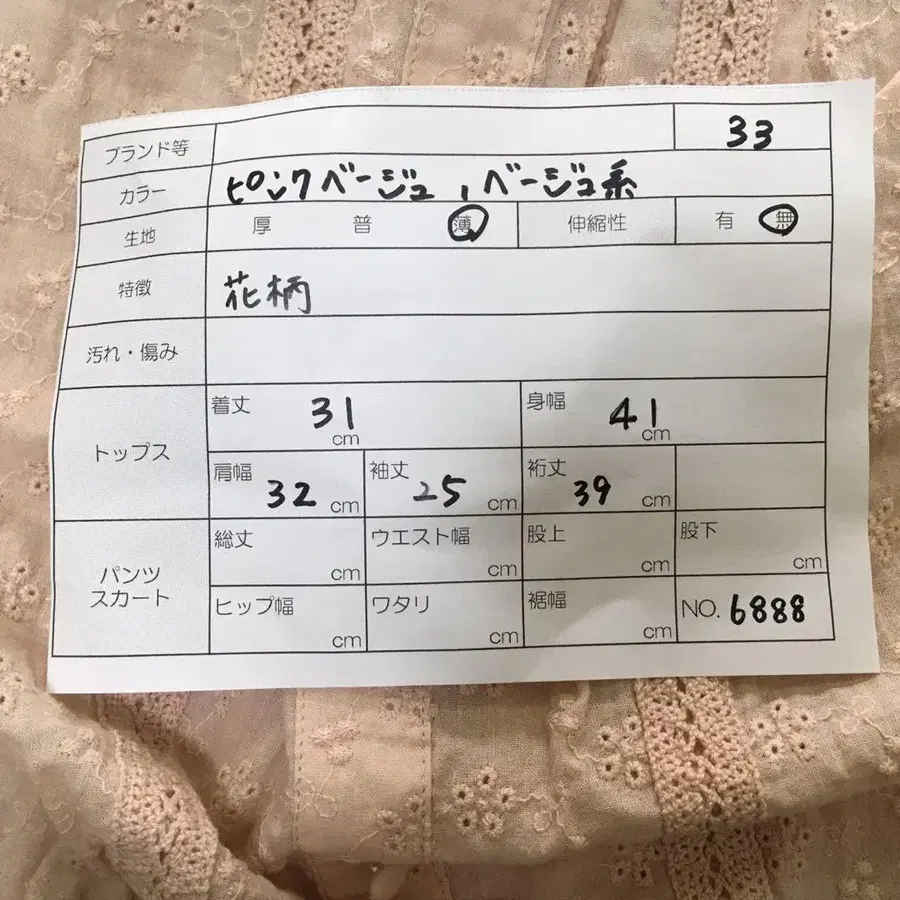 ブランド等 33
カラー ピンクベージュ,ベージュ系
生地 厚 普 薄 伸縮性 有 無
特徴 花柄
汚れ・傷み
トップス
着丈 31 cm 身幅 41 cm
肩幅 32 cm 袖丈 25 cm 裄丈 39 cm
パンツ
スカート
総丈 cm ウエスト幅 cm 股上 cm 股下 cm
ヒップ幅 cm ワタリ cm 裾幅 cm NO. 6888